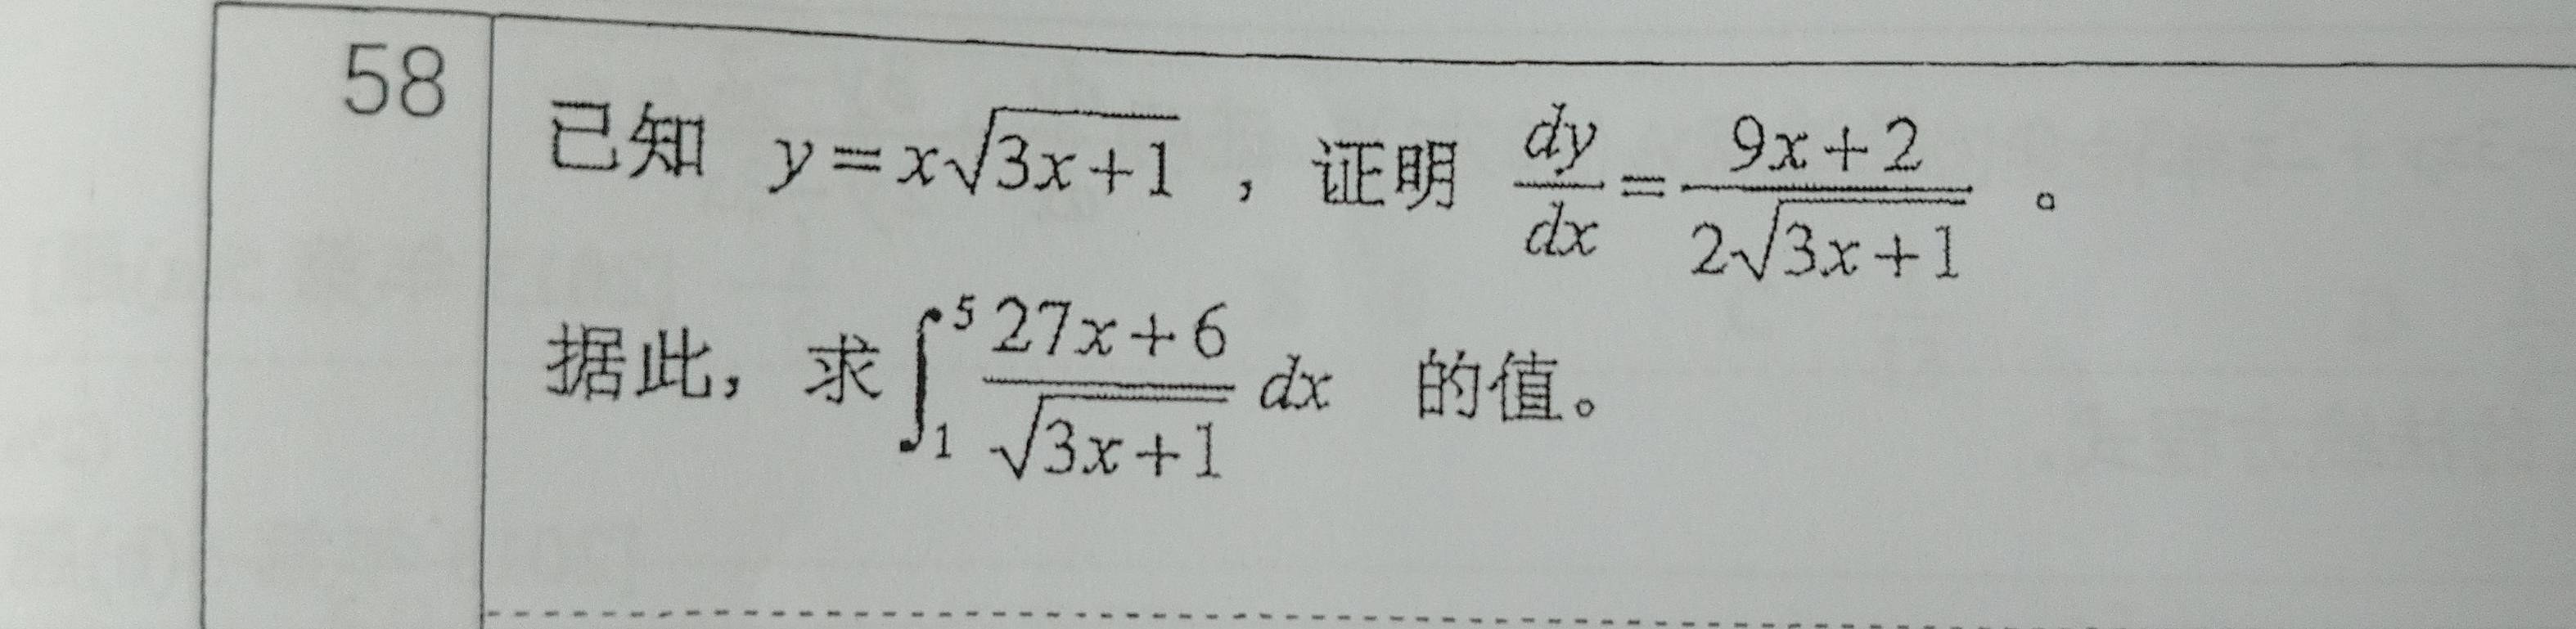 58
已知 y=x√(3x+1) , 证明 dy/dx = (9x+2)/(2√(3x+1)) 。
据此, 求 ∫₁⁵ (27x+6)/√(3x+1) dx 的值。